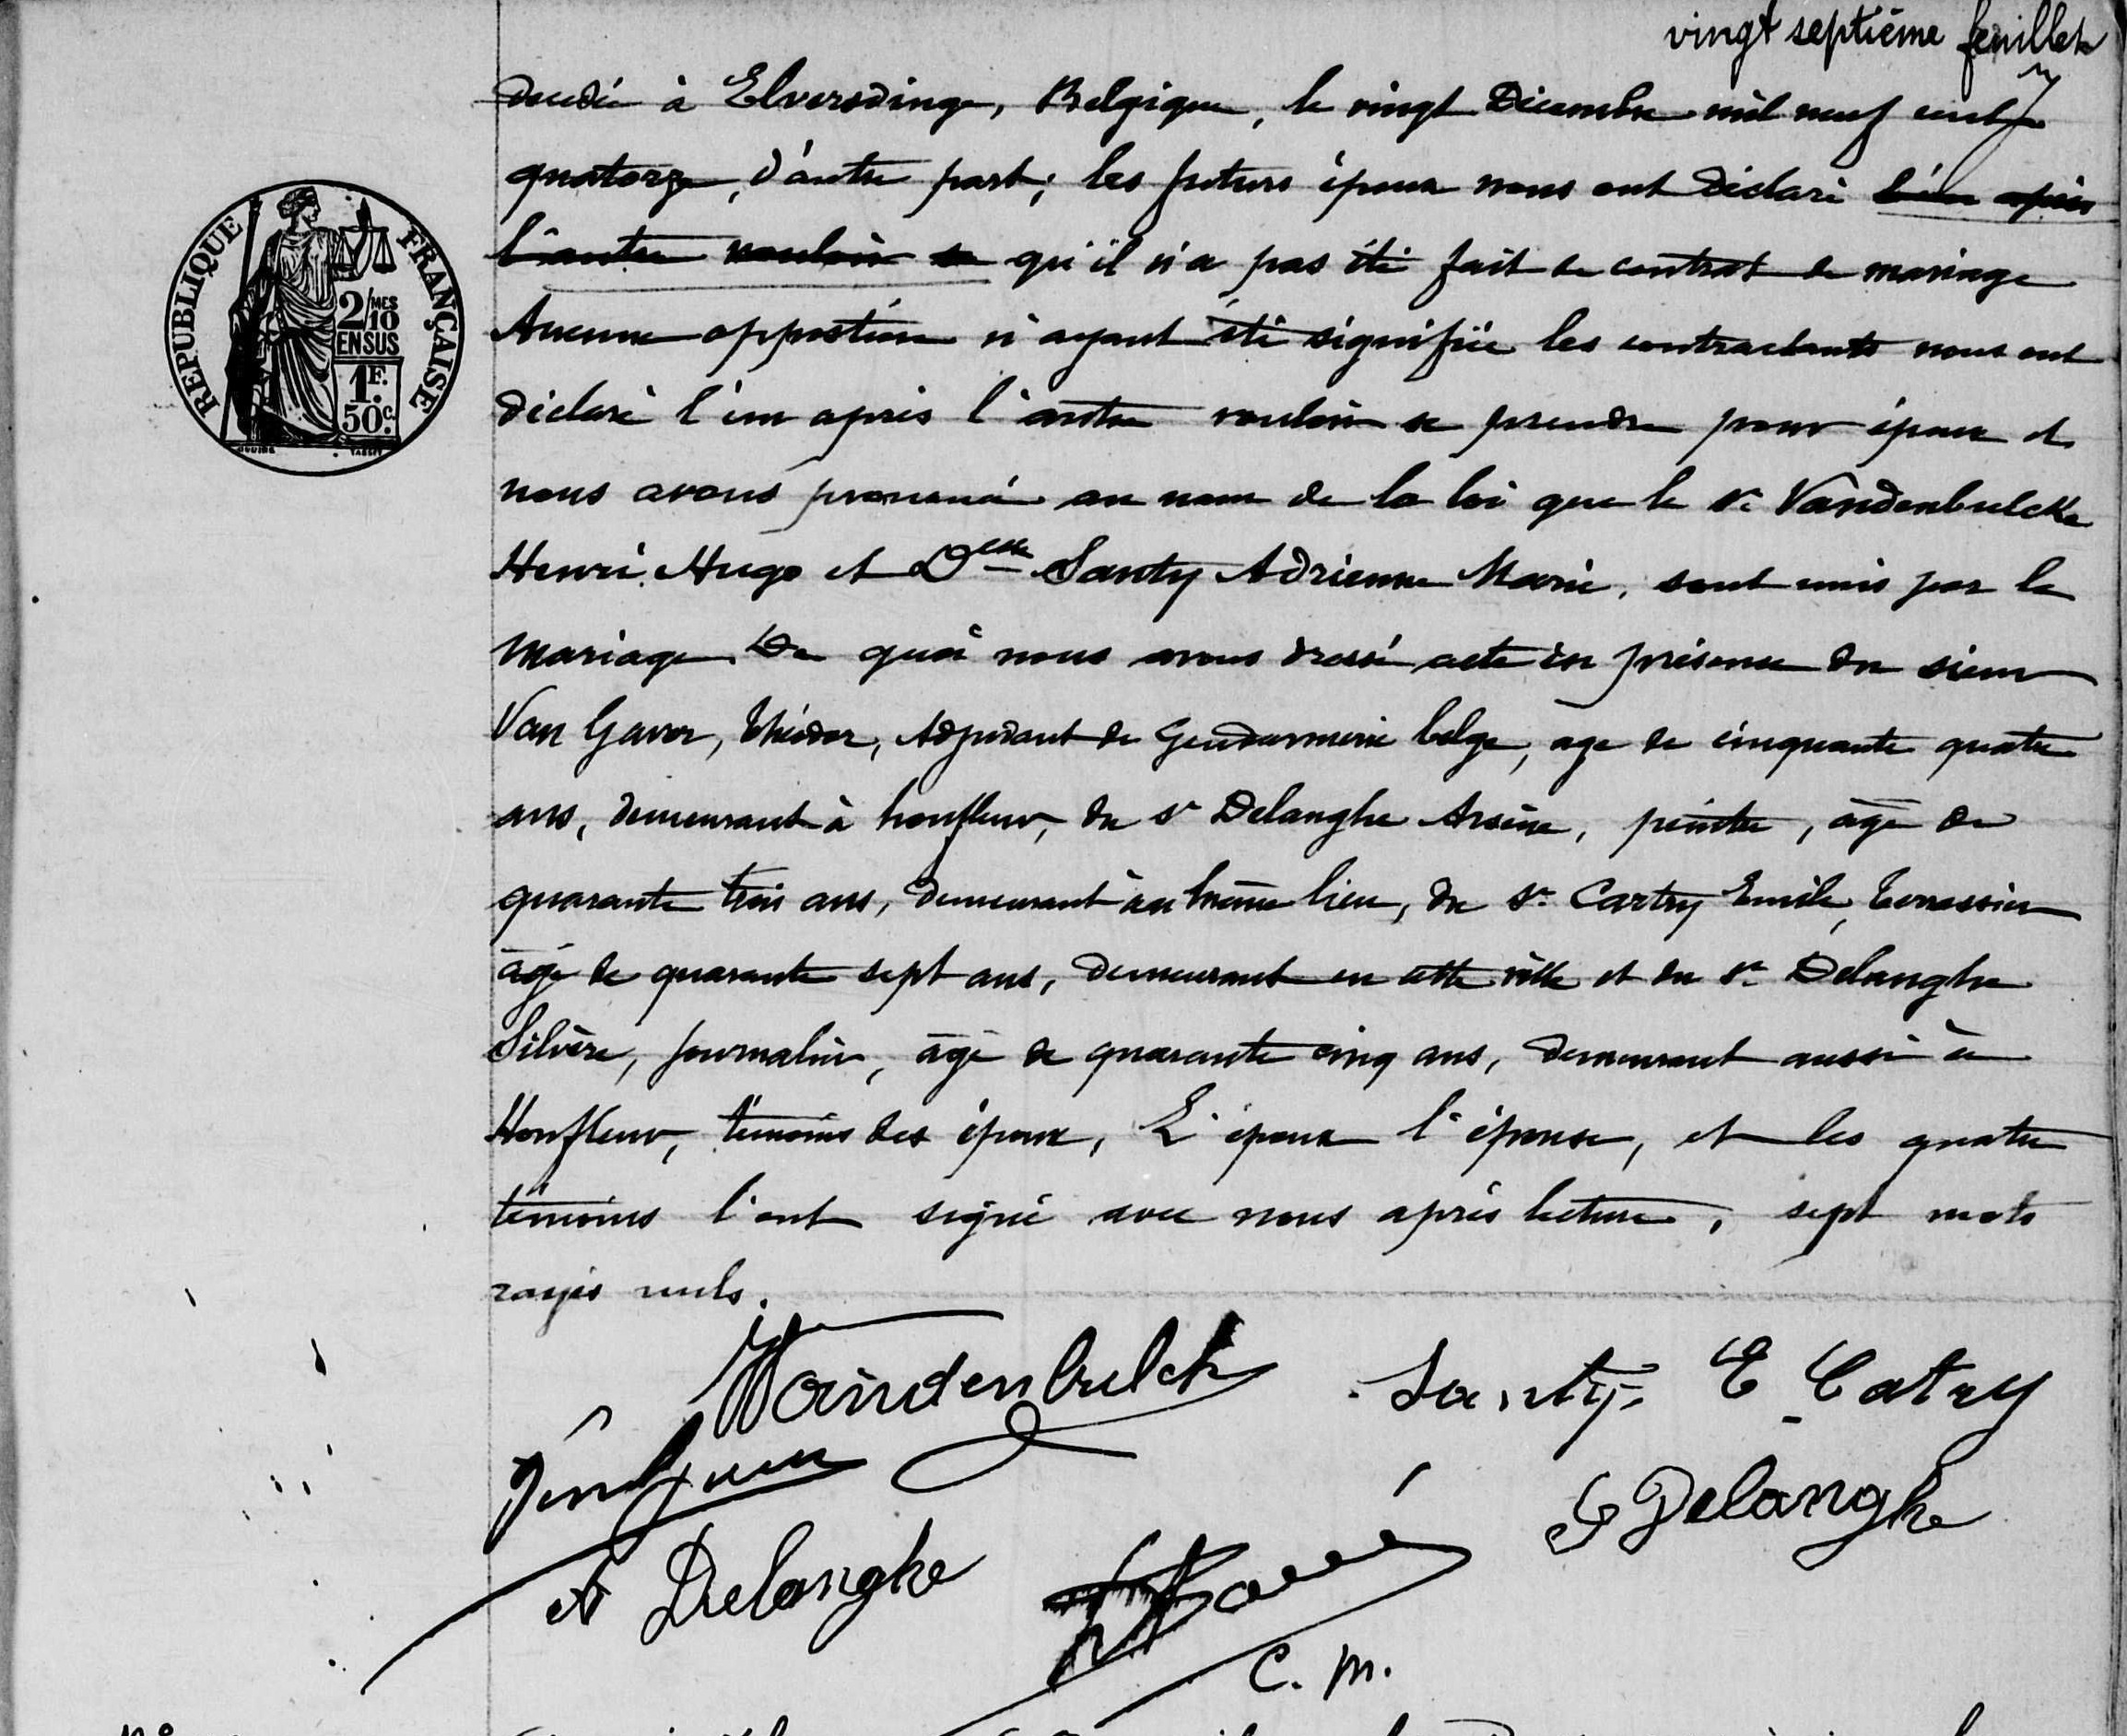 vingt septième feuillet
décédée à Elverdinge, Belgique, le vingt Décembre mil neuf cent
quatorze, d'autre part; les futurs époux nous ont déclaré l'un après
l'autre vouloir se qu'il n'a pas été fait de contrat de mariage
Aucune oppostion n'ayant été signifiée les contractants nous ont
déclaré l'un après l'autre vouloir se prendre pour époux et
nous avons prononcé au nom de la loi que le sr Vandenbulcke
Henri Hugo et Delle Santy Adrienne Marie, sont unis par le
mariage. De quoi nous avons dressé acte en présence du sieur
Van Gaver, Théodor, Adjudant de Gendarmerie belge, age de cinquante quatre
ans, demeurant à honfleur, du sr Delanghe Arsène, peintre, âgé de
quarante trois ans, demeurant au même lieu, du sr Cartry Emile, Terrassier
âgé de quarante sept ans, demeurant en cette ville et du sr Delanghe
Silvère, journalier, âgé de quarante cinq ans, demeurant aussi à
Honfleur, témoins des époux, L'époux l'épouse, et les quatre
témoins l'ont signé avec nous après lecture, sept mots
rayés nuls.
REPUBLIQUE FRANÇAISE
2/10 MES
EN SUS
1F.
50c.
Vandenbulck Santy E Catry
A Delanghe S Delanghe
C. M.